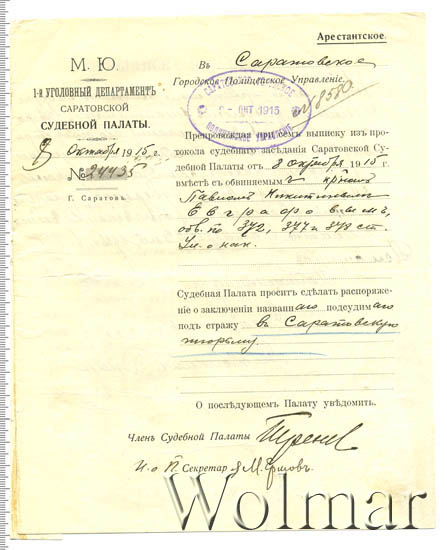 Арестантское.
М. Ю.
1-й УГОЛОВНЫЙ ДЕПАРТАМЕНТЪ
САРАТОВСКОЙ
СУДЕБНОЙ ПАЛАТЫ.
8 Октября 1915 г.
№ 24435
Г. Саратовъ.
Въ Саратовское
Городское Полицейское Управленіе.
9 - ОКТ 1915
ПОЛИЦЕЙСКОЕ УПРАВЛЕНІЕ
№ 8580.
Препровождая при семъ выписку изъ про-
токола судебнаго засѣданія Саратовской Су-
дебной Палаты отъ 8 Октября 1915 г.
вмѣстѣ съ обвиняемымъ
Павломъ Никитинымъ
Евграфовымъ,
обв. по 372, 377 и 378 ст.
Ул. о нак.
Судебная Палата проситъ сдѣлать распоряже-
ніе о заключеніи названнаго подсудимаго
подъ стражу въ Саратовскую
тюрьму.
О послѣдующемъ Палату увѣдомить.
Членъ Судебной Палаты
И. о П. Секретаря М. Ершовъ.
Wolmar